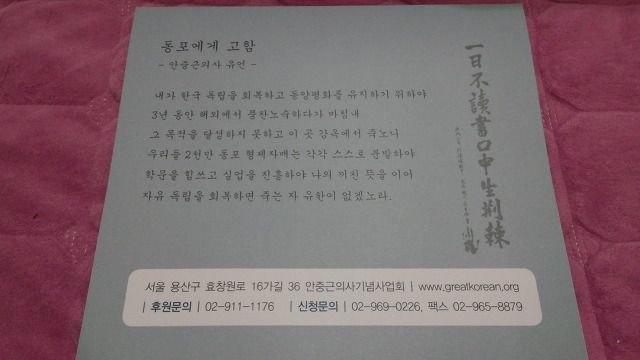 동포에게 고함
- 안중근의사 유언 -
내가 한국 독립을 회복하고 동양평화를 유지하기 위하야
3년 동안 해외에서 풍찬노숙하다가 마침내
그 목적을 달성하지 못하고 이 곳 감옥에서 죽노니
우리들 2천만 동포 형제자매는 각각 스스로 분발하야
학문을 힘쓰고 실업을 진흥하야 나의 끼친 뜻을 이어
자유 독립을 회복하면 죽는 자 유한이 없겠노라.
一日不讀書口中生荊棘
서울 용산구 효창원로 16가길 36 안중근의사기념사업회 | www.greatkorean.org
| 후원문의 | 02-911-1176 | 신청문의 | 02-969-0226, 팩스 02-965-8879